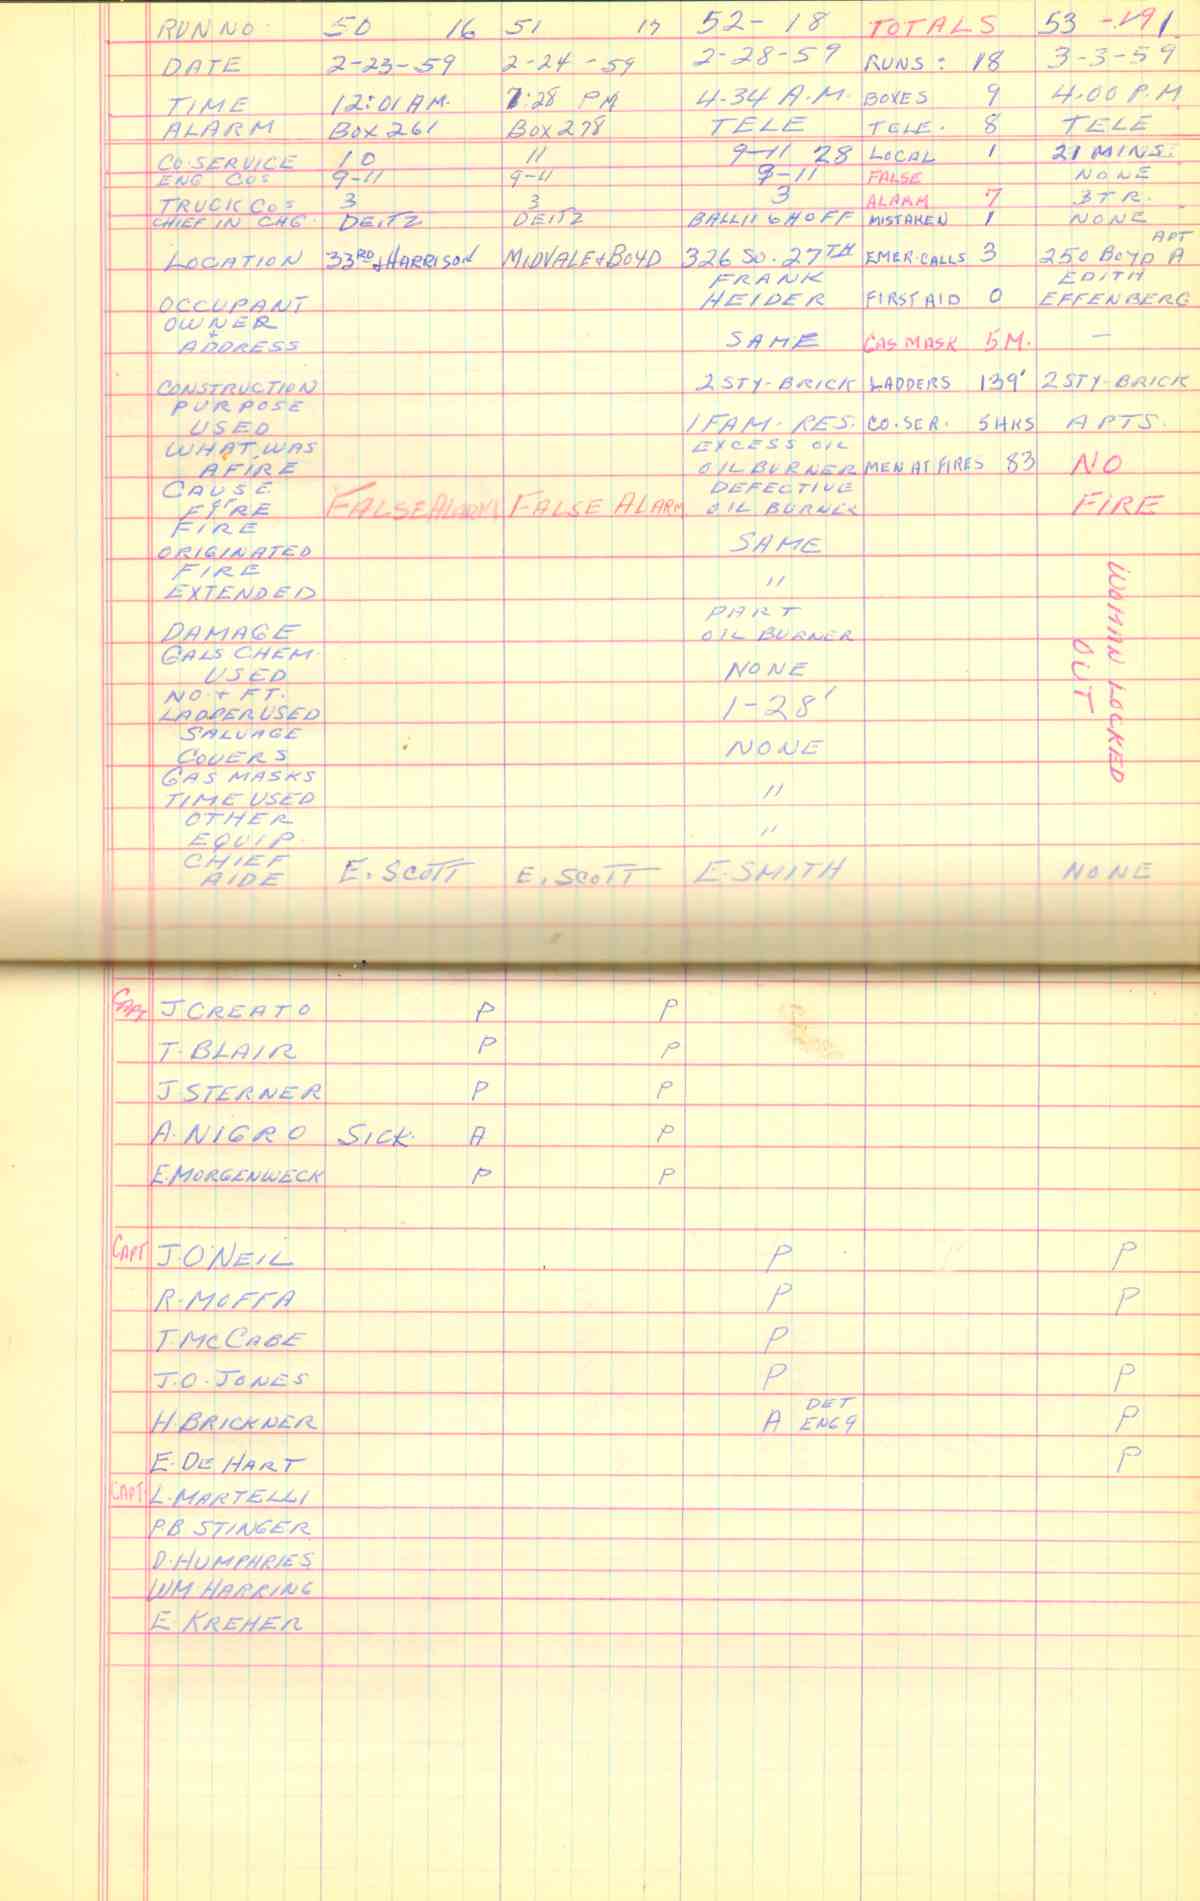 RUN NO. 50 16 51 17 52-18 TOTALS 53 -191
DATE 2-23-59 2-24-59 2-28-59 RUNS: 18 3-3-59
TIME 12:01 AM. 7:28 PM 4-34 A.M. BOXES 9 4.00 P.M
ALARM BOX 261 BOX 278 TELE TELE. 8 TELE
CO. SERVICE 10 11 9-11 28 LOCAL 1 21 MINS.
ENG COS 9-11 9-11 9-11 FALSE NONE
TRUCK COS 3 3 3 ALARM 7 3 TR.
CHIEF IN CHG. DEITZ DEITZ BALLINGHOFF MISTAKEN 1 NONE
APT
LOCATION 33RD & HARRISON MIDVALE & BOYD 326 SO. 27TH EMER. CALLS 3 250 BOYD A
FRANK EDITH
OCCUPANT HEIDER FIRST AID 0 EFFENBERG
OWNER
&
ADDRESS SAME GAS MASK 5 M. —
CONSTRUCTION 2 STY-BRICK LADDERS 139' 2 STY-BRICK
PURPOSE
USED 1 FAM. RES. CO. SER. 5 HRS APTS.
WHAT WAS EXCESS OIL
AFIRE OIL BURNER MEN AT FIRES 83 NO
CAUSE DEFECTIVE
OF FIRE FALSE ALARM FALSE ALARM OIL BURNER FIRE
FIRE
ORIGINATED SAME
FIRE
EXTENDED "
WOMAN LOCKED
OUT
PART
DAMAGE OIL BURNER
GALS CHEM.
USED NONE
NO. + FT.
LADDER USED 1-28'
SALVAGE
COVERS NONE
GAS MASKS
TIME USED "
OTHER
EQUIP. "
CHIEF
AIDE E. SCOTT E. SCOTT E. SMITH NONE
CAPT J CREATO P P
T. BLAIR P P
J STERNER P P
A. NIGRO SICK. A P
E. MORGENWECK P P
CAPT J. O'NEIL P P
R. MOFFA P P
T. McCABE P
J. O. JONES P P
DET
H. BRICKNER A ENG 9 P
E. DE HART P
CAPT. L. MARTELLI
P.B STINGER
D. HUMPHRIES
WM. HARRING
E. KREHER